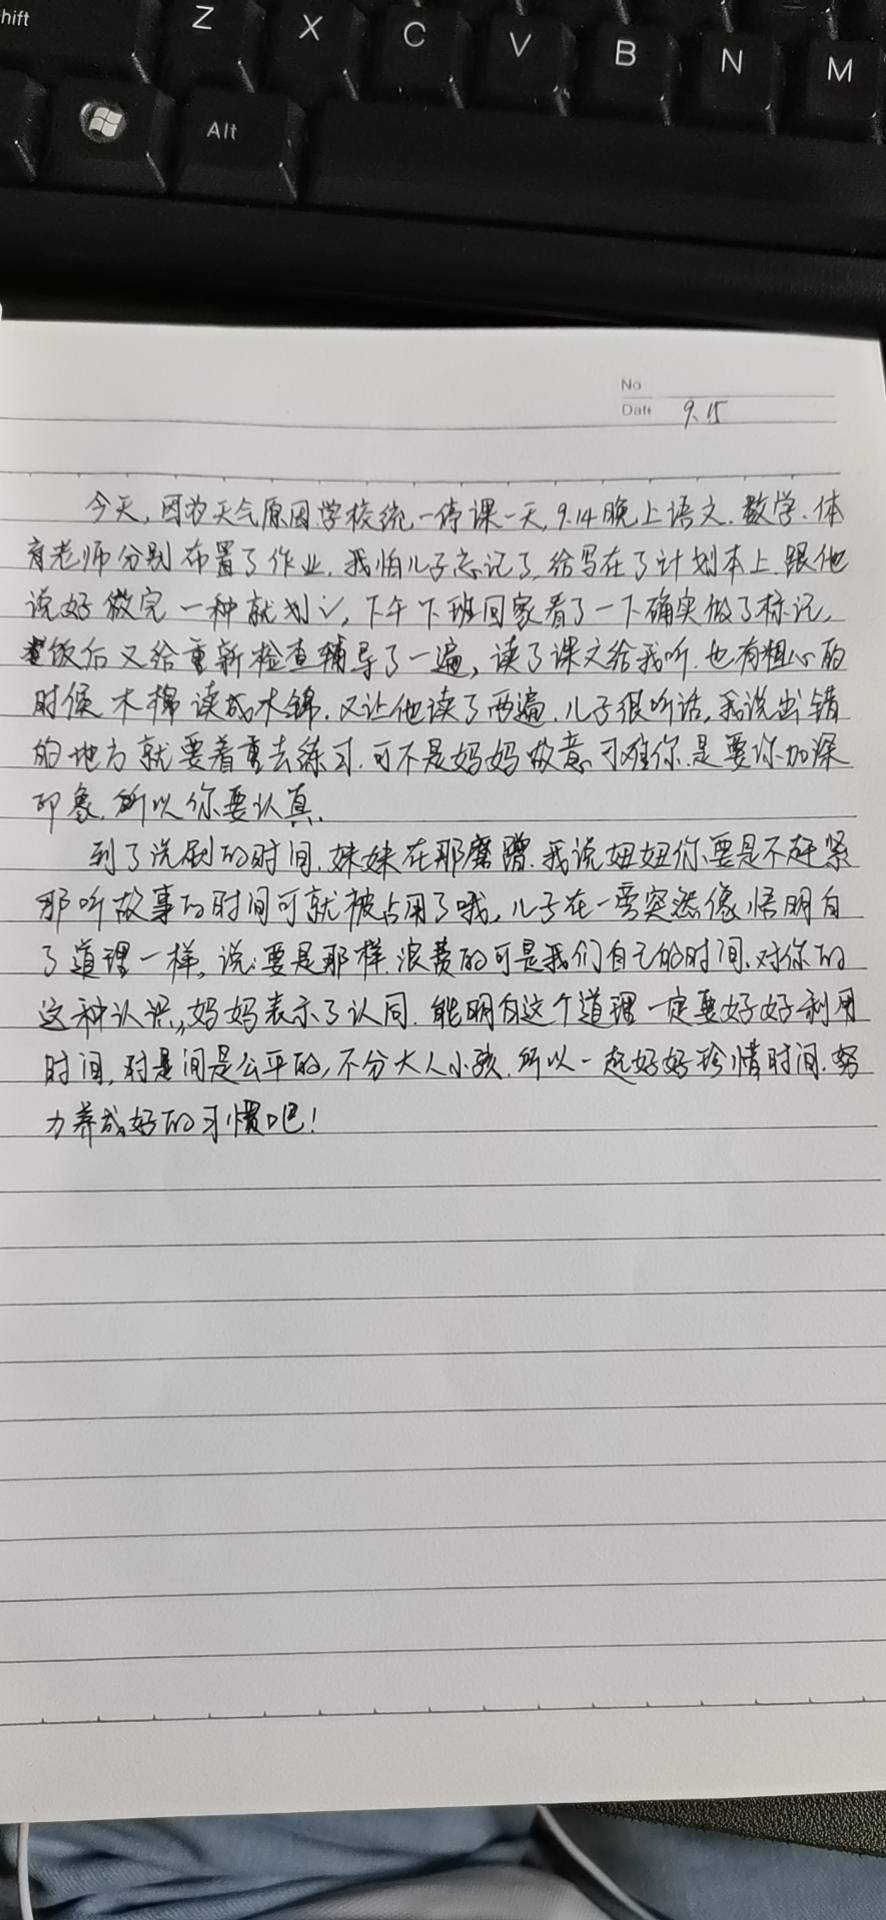 Shift Z X C V B N M
Alt
No
Date 9.15
今天,因为天气原因学校统一停课一天,9.14晚上语文.数学.体
育老师分别布置了作业.我怕儿子忘记了,给写在了计划本上.跟他
说好做完一种就划√,下午下班回家看了一下确实做了标记,
饭后又给重新检查辅导了一遍,读了课文给我听.也有粗心的
时候木棉读成木锦.又让他读了两遍.儿子很听话,我说出错
的地方就要着重去练习.可不是妈妈故意刁难你.是要你加深
印象.所以你要认真.
到了洗刷的时间.妹妹在那磨蹭.我说妞妞你要是不赶紧
那听故事的时间可就被占用了哦,儿子在一旁突然像悟明白
了道理一样,说:要是那样.浪费的可是我们自己的时间.对你的
这种认识,妈妈表示了认同.能明白这个道理一定要好好利用
时间,时是间是公平的,不分大人小孩.所以一起好好珍惜时间.努
力养成好的习惯吧!